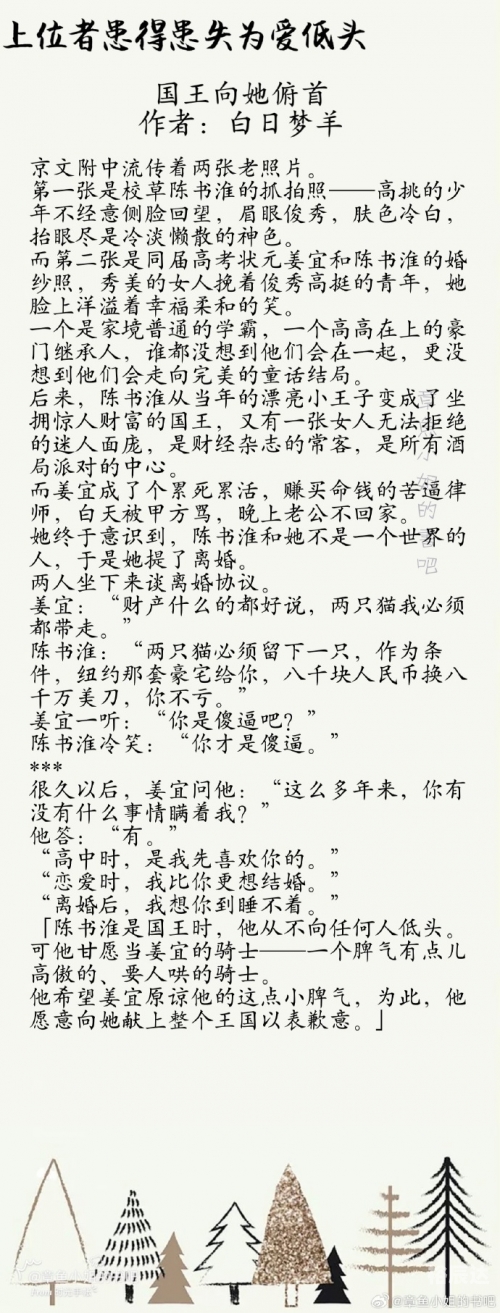 上位者患得患失为爱低头
国王向她俯首
作者：白日梦羊
京文附中流传着两张老照片。
第一张是校草陈书淮的抓拍照——高挑的少
年不经意侧脸回望，眉眼俊秀，肤色冷白，
抬眼尽是冷淡懒散的神色。
而第二张是同届高考状元姜宜和陈书淮的婚
纱照，秀美的女人挽着俊秀高挺的青年，她
脸上洋溢着幸福柔和的笑。
一个是家境普通的学霸，一个高高在上的豪
门继承人，谁都没想到他们会在一起，更没
想到他们会走向完美的童话结局。
后来，陈书淮从当年的漂亮小王子变成了坐
拥惊人财富的国王，又有一张女人无法拒绝
的迷人面庞，是财经杂志的常客，是所有酒
局派对的中心。
而姜宜成了个累死累活，赚买命钱的苦逼律
师，白天被甲方骂，晚上老公不回家。
她终于意识到，陈书淮和她不是一个世界的
人，于是她提了离婚。
两人坐下来谈离婚协议。
姜宜：“财产什么的都好说，两只猫我必须
都带走。”
陈书淮：“两只猫必须留下一只，作为条
件，纽约那套豪宅给你，八千块人民币换八
千万美刀，你不亏。”
姜宜一听：“你是傻逼吧？”
陈书淮冷笑：“你才是傻逼。”
***
很久以后，姜宜问他：“这么多年来，你有
没有什么事情瞒着我？”
他答：“有。”
“高中时，是我先喜欢你的。”
“恋爱时，我比你更想结婚。”
“离婚后，我想你到睡不着。”
「陈书淮是国王时，他从不向任何人低头。
可他甘愿当姜宜的骑士——一个脾气有点儿
高傲的、要人哄的骑士。
他希望姜宜原谅他的这点小脾气，为此，他
愿意向她献上整个王国以表歉意。」